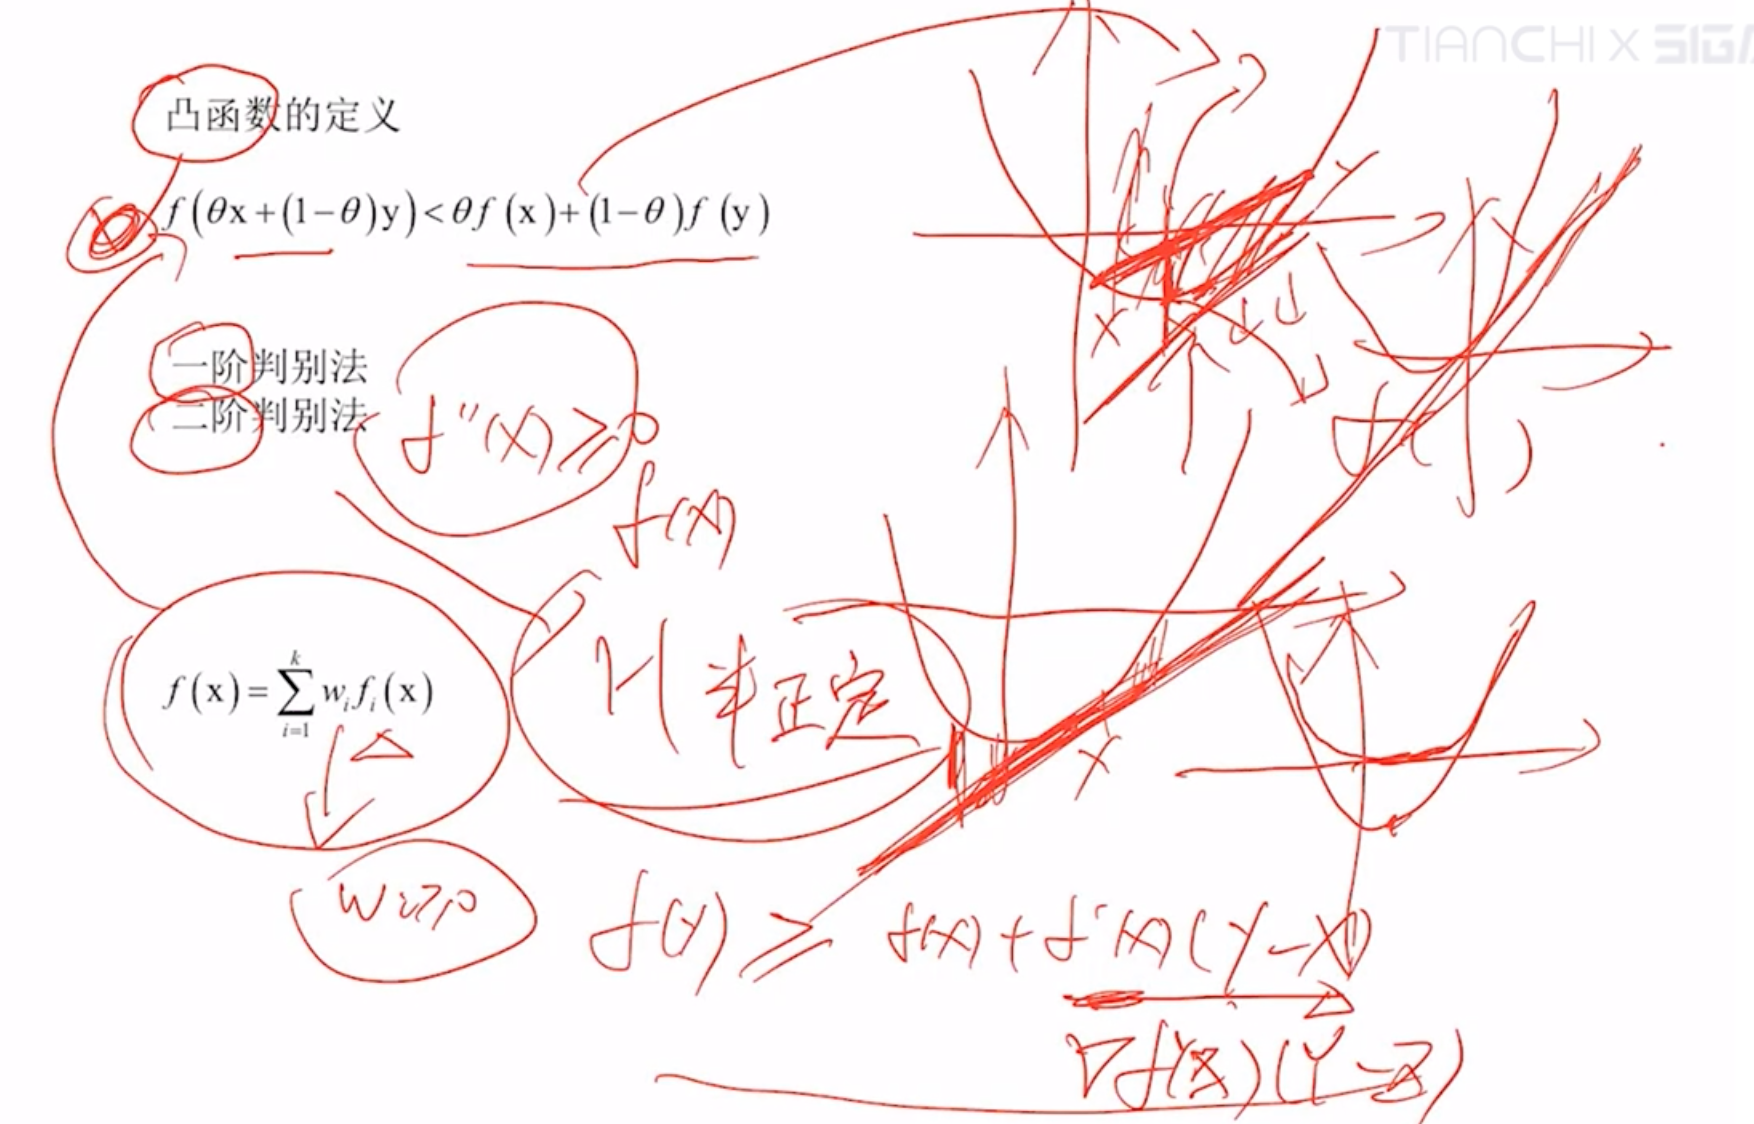 TIANCHI X SIGA
凸函数的定义
f(θx+(1−θ)y)<θf(x)+(1−θ)f(y)
一阶判别法
二阶判别法
f''(x)≥0
f(x)
f(x)=∑_{i=1}^{k} w_i f_i(x)
H 半正定
x
y
x
w_i≥0
f(y) ≥ f(x)+f'(x)(y−x)
∇f(x)(y−x)